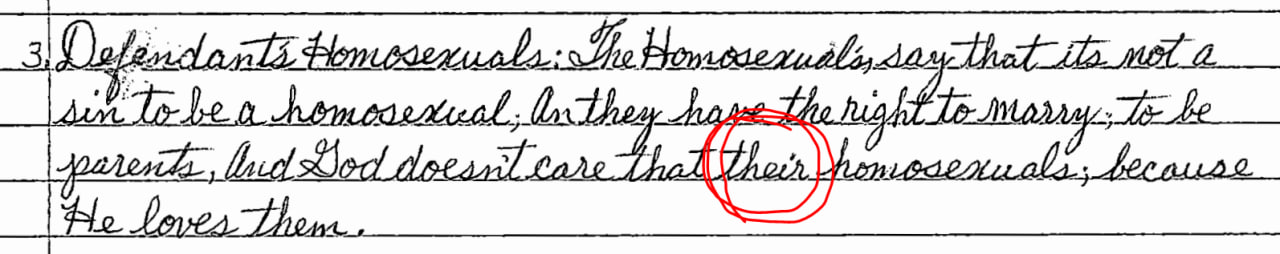 3. Defendant's Homosexuals: The Homosexual's, say that its not a
sin to be a homosexual; An they have the right to marry; to be
parents, And God doesn't care that their homosexuals; because
He loves them.